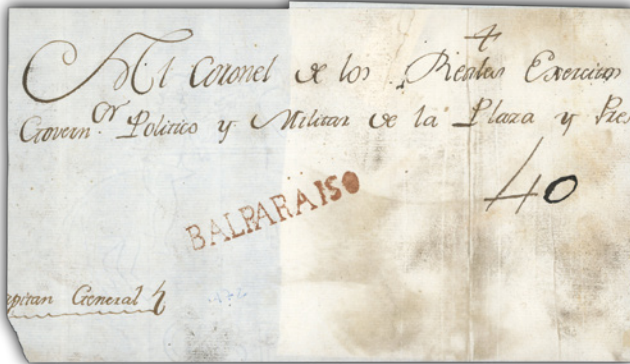 4
Al Coronel de los Reales Exercitos
Govern.or Politico y Militar de la Plaza y Pres
40
BALPARAISO
apitan General